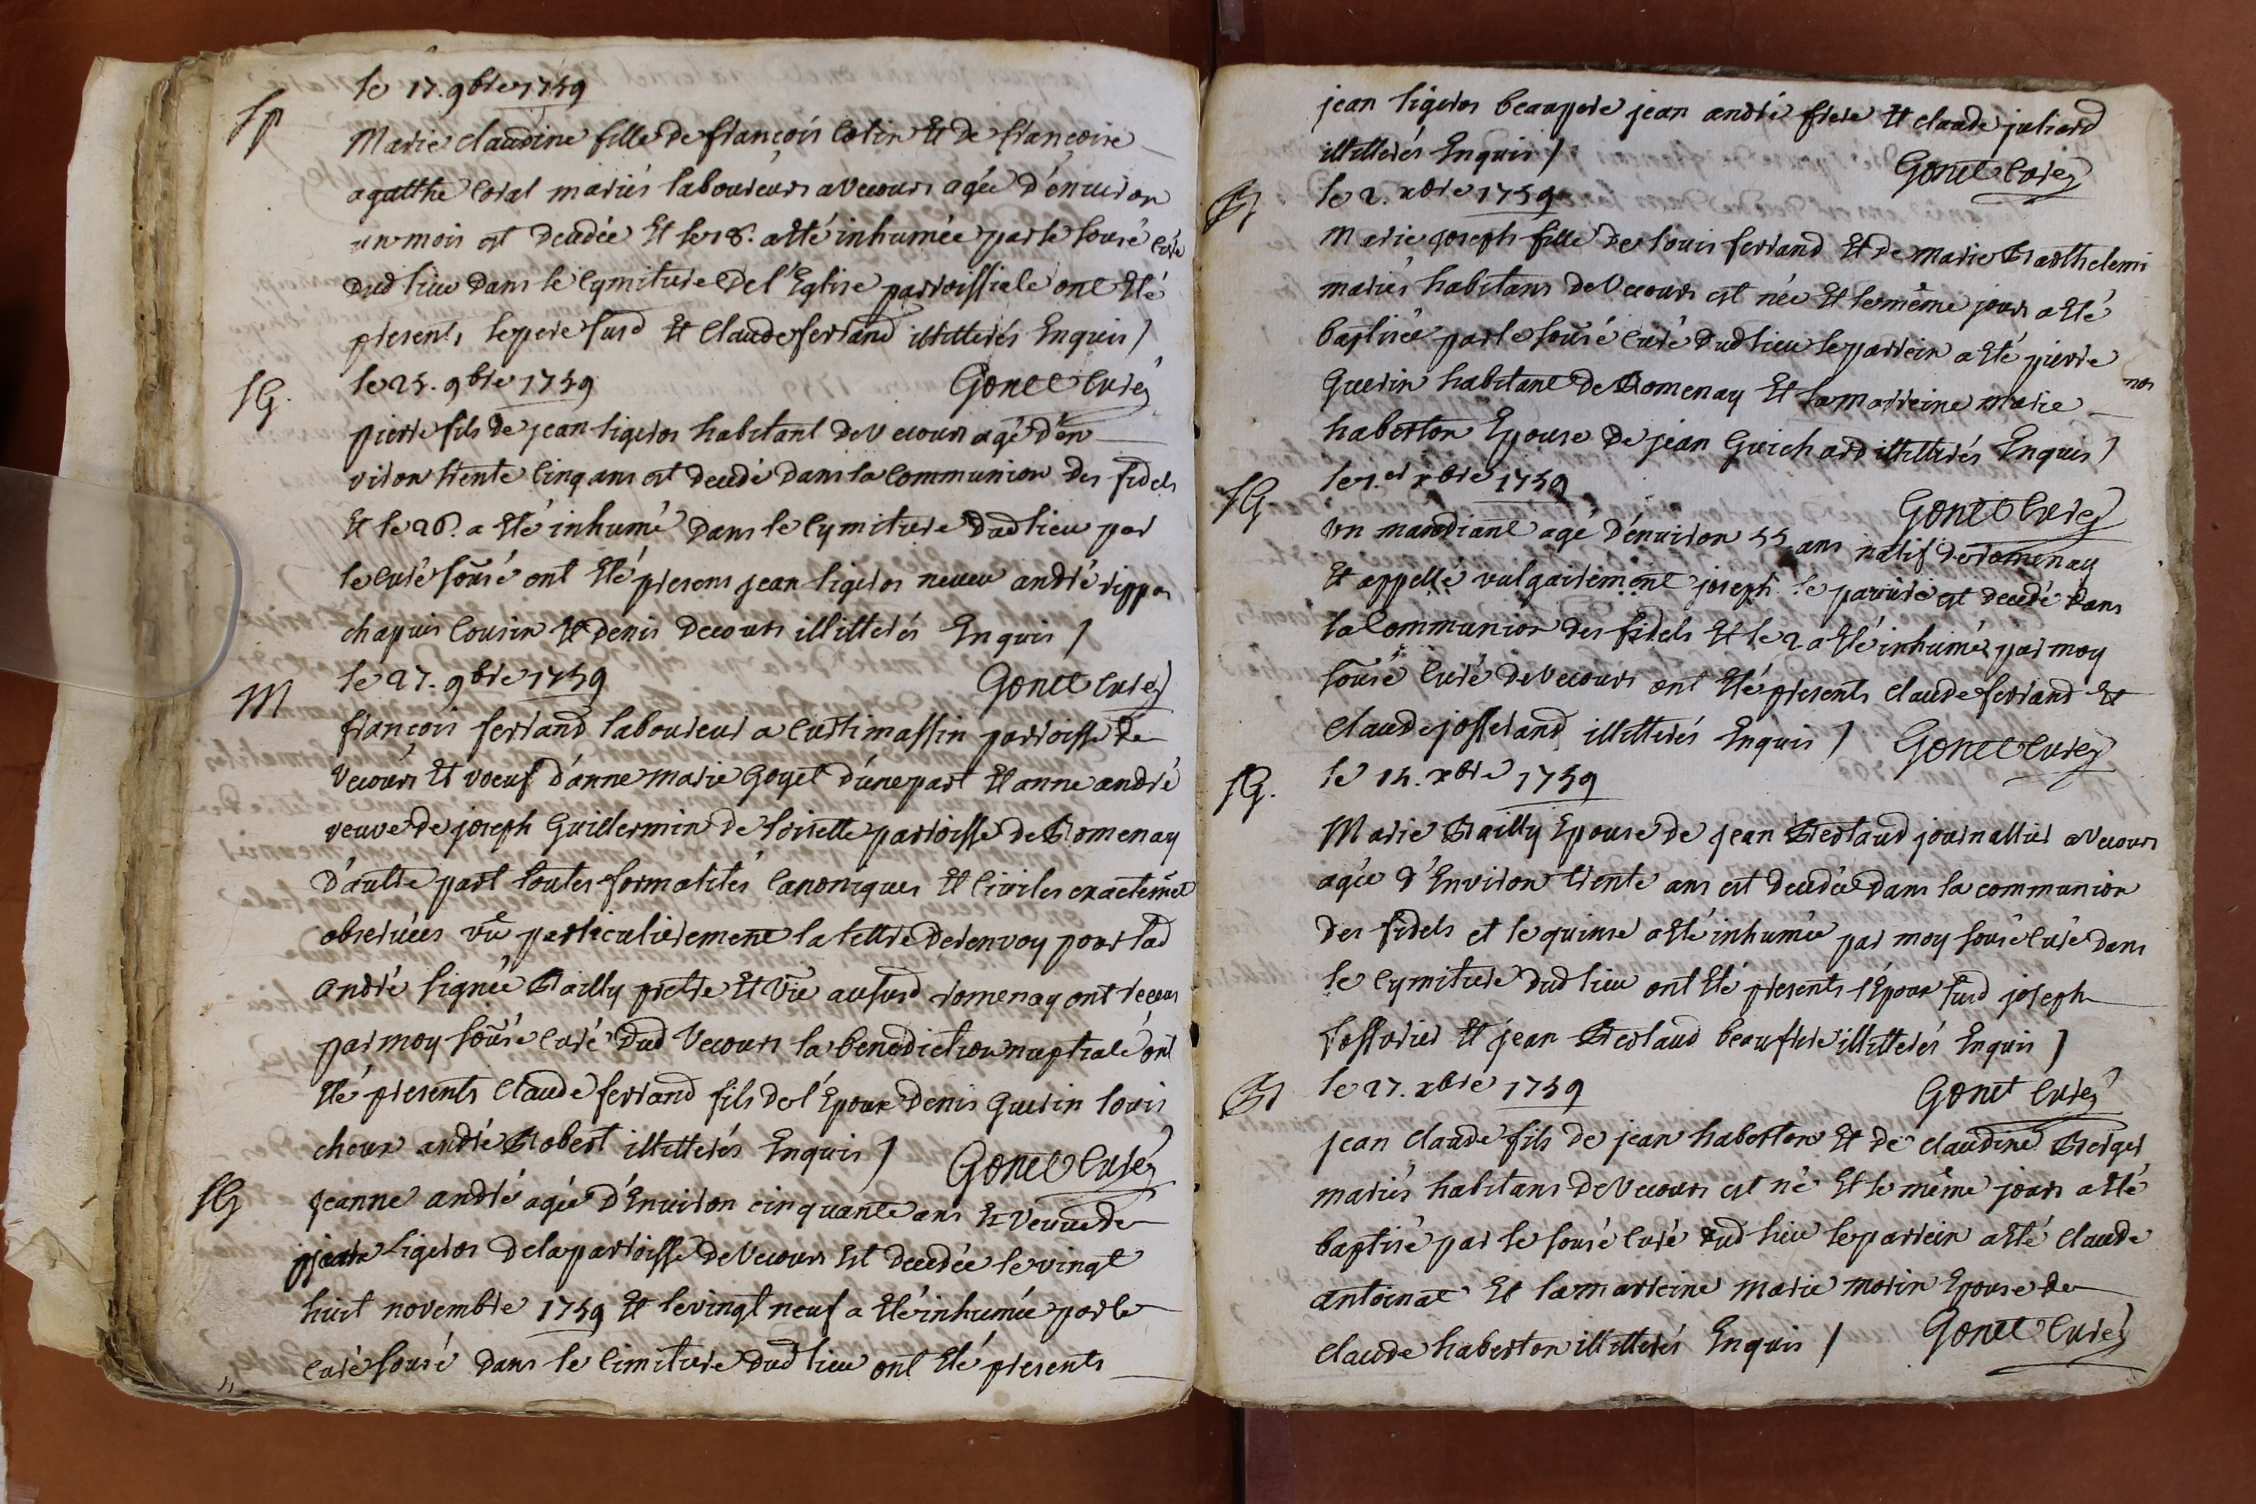 le 17. 9bre 1759
Sp
Marie claudine fille de françois Colin Et de françoise
agatthe Coral mariés laboureurs a Vecours agée d'enuiron
un mois est decedée Et le 18. a été inhumée par le sousé curé
dud lieu dans le Cymiture de l'Eglise parroissiale ont Eté
presents le pere susd Et Claude ferrand illitterés Enquis /
SG.
le 25. 9bre 1759
Gonet Curé
pierre fils de jean ligeron habitant de Vecours agé d'en
viron trente Cinq ans est decedé dans la Communion des fidels
Et le 26. a Eté inhumé dans le Cymiture dud lieu par
le Curé sousé ont Eté presens jean ligeron neveu andré rippe
chapuis Cousin Et denis decours illitterés Enquis /
M
le 27. 9bre 1759
Gonet Curé
françois ferrand laboureur a Curtimassin parroisse de
Vecours Et voeuf d'anne marie Goyet d'une part Et anne andré
veuve de joseph Guillermin de loisette parroisse de Romenay
d'autre part toutes formalités Canoniques Et Civiles exactemet
obseruées vû particulierement la lettre de renvoy pour lad
andré signée Bailly pretre Et Vic au susd romenay ont receus
par moy sousé Curé dud Vecours la benediction nuptiale ont
Eté presents Claude ferrand fils de l'Epoux denis Guerin louis
choux andré Robert illitterés Enquis /
Gonet Curé
SG
jeanne andré agée d'Enuiron cinquante ans Et Veuve de
jean Ligeron de la parroisse de Vecours Est decedée le vingt
huit novembre 1759 Et le vingt neuf a Eté inhumée par le
Curé sousé dans le Cimiture dud lieu ont Eté presents
jean ligeron beaupere jean andré frere Et claude juliard
illitterés Enquis /
Gonet Curé
B
le 2. xbre 1759
Marie joseph fille de louis ferrand Et de Marie Barthelemi
mariés habitans de Vecours est née Et le même jour a Eté
baptisée par le sousé Curé dud lieu le parrein a Eté pierre
Guerin habitant de Romenay Et la marreine Marie
haberton Epouse de jean Guichard illitterés Enquis /
SG
le 1.er xbre 1759
Gonet Curé
Un mandiant agé d'enuiron 55 ans natif de romenay
Et appellé vulgairement joseph le est decedé dans
la Communion des fidels Et le 2 a Eté inhumé par moy
sousé Curé de Vecours ont Eté presents Claude ferrand Et
Claude josserand illitterés Enquis /
Gonet Curé
SG.
le 14. xbre 1759
Marie Bailly Epouse de jean Berlaud journallier a Vecours
agée d'Environ trente ans est decedée dans la communion
des fidels et le quinse a Eté inhumée par moy sousé Curé dans
le Cymiture dud lieu ont Eté presents l'Epoux susd joseph
Et jean Berlaud beaufrere illitterés Enquis /
B
le 27. xbre 1759
Gonet Curé
jean claude fils de jean haberton Et de claudine Berger
mariés habitans de Vecours est né Et le même jour a Eté
baptisé par le sousé Curé dud lieu le parrein a Eté Claude
antoinat Et la marreine Marie morin Epouse de
Claude haberton illitterés Enquis /
Gonet Curé